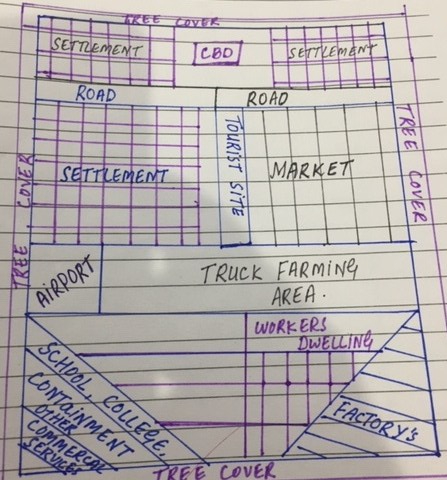 TREE COVER
SETTLEMENT
CBD
SETTLEMENT
ROAD
ROAD
TREE COVER
SETTLEMENT
TOURIST SITE
MARKET
TREE COVER
AIRPORT
TRUCK FARMING
AREA.
WORKERS
DWELLING
SCHOOL, COLLEGE,
CONTAINMENT
OTHER
COMMERCAL
SERVICES
FACTORY'S
TREE COVER